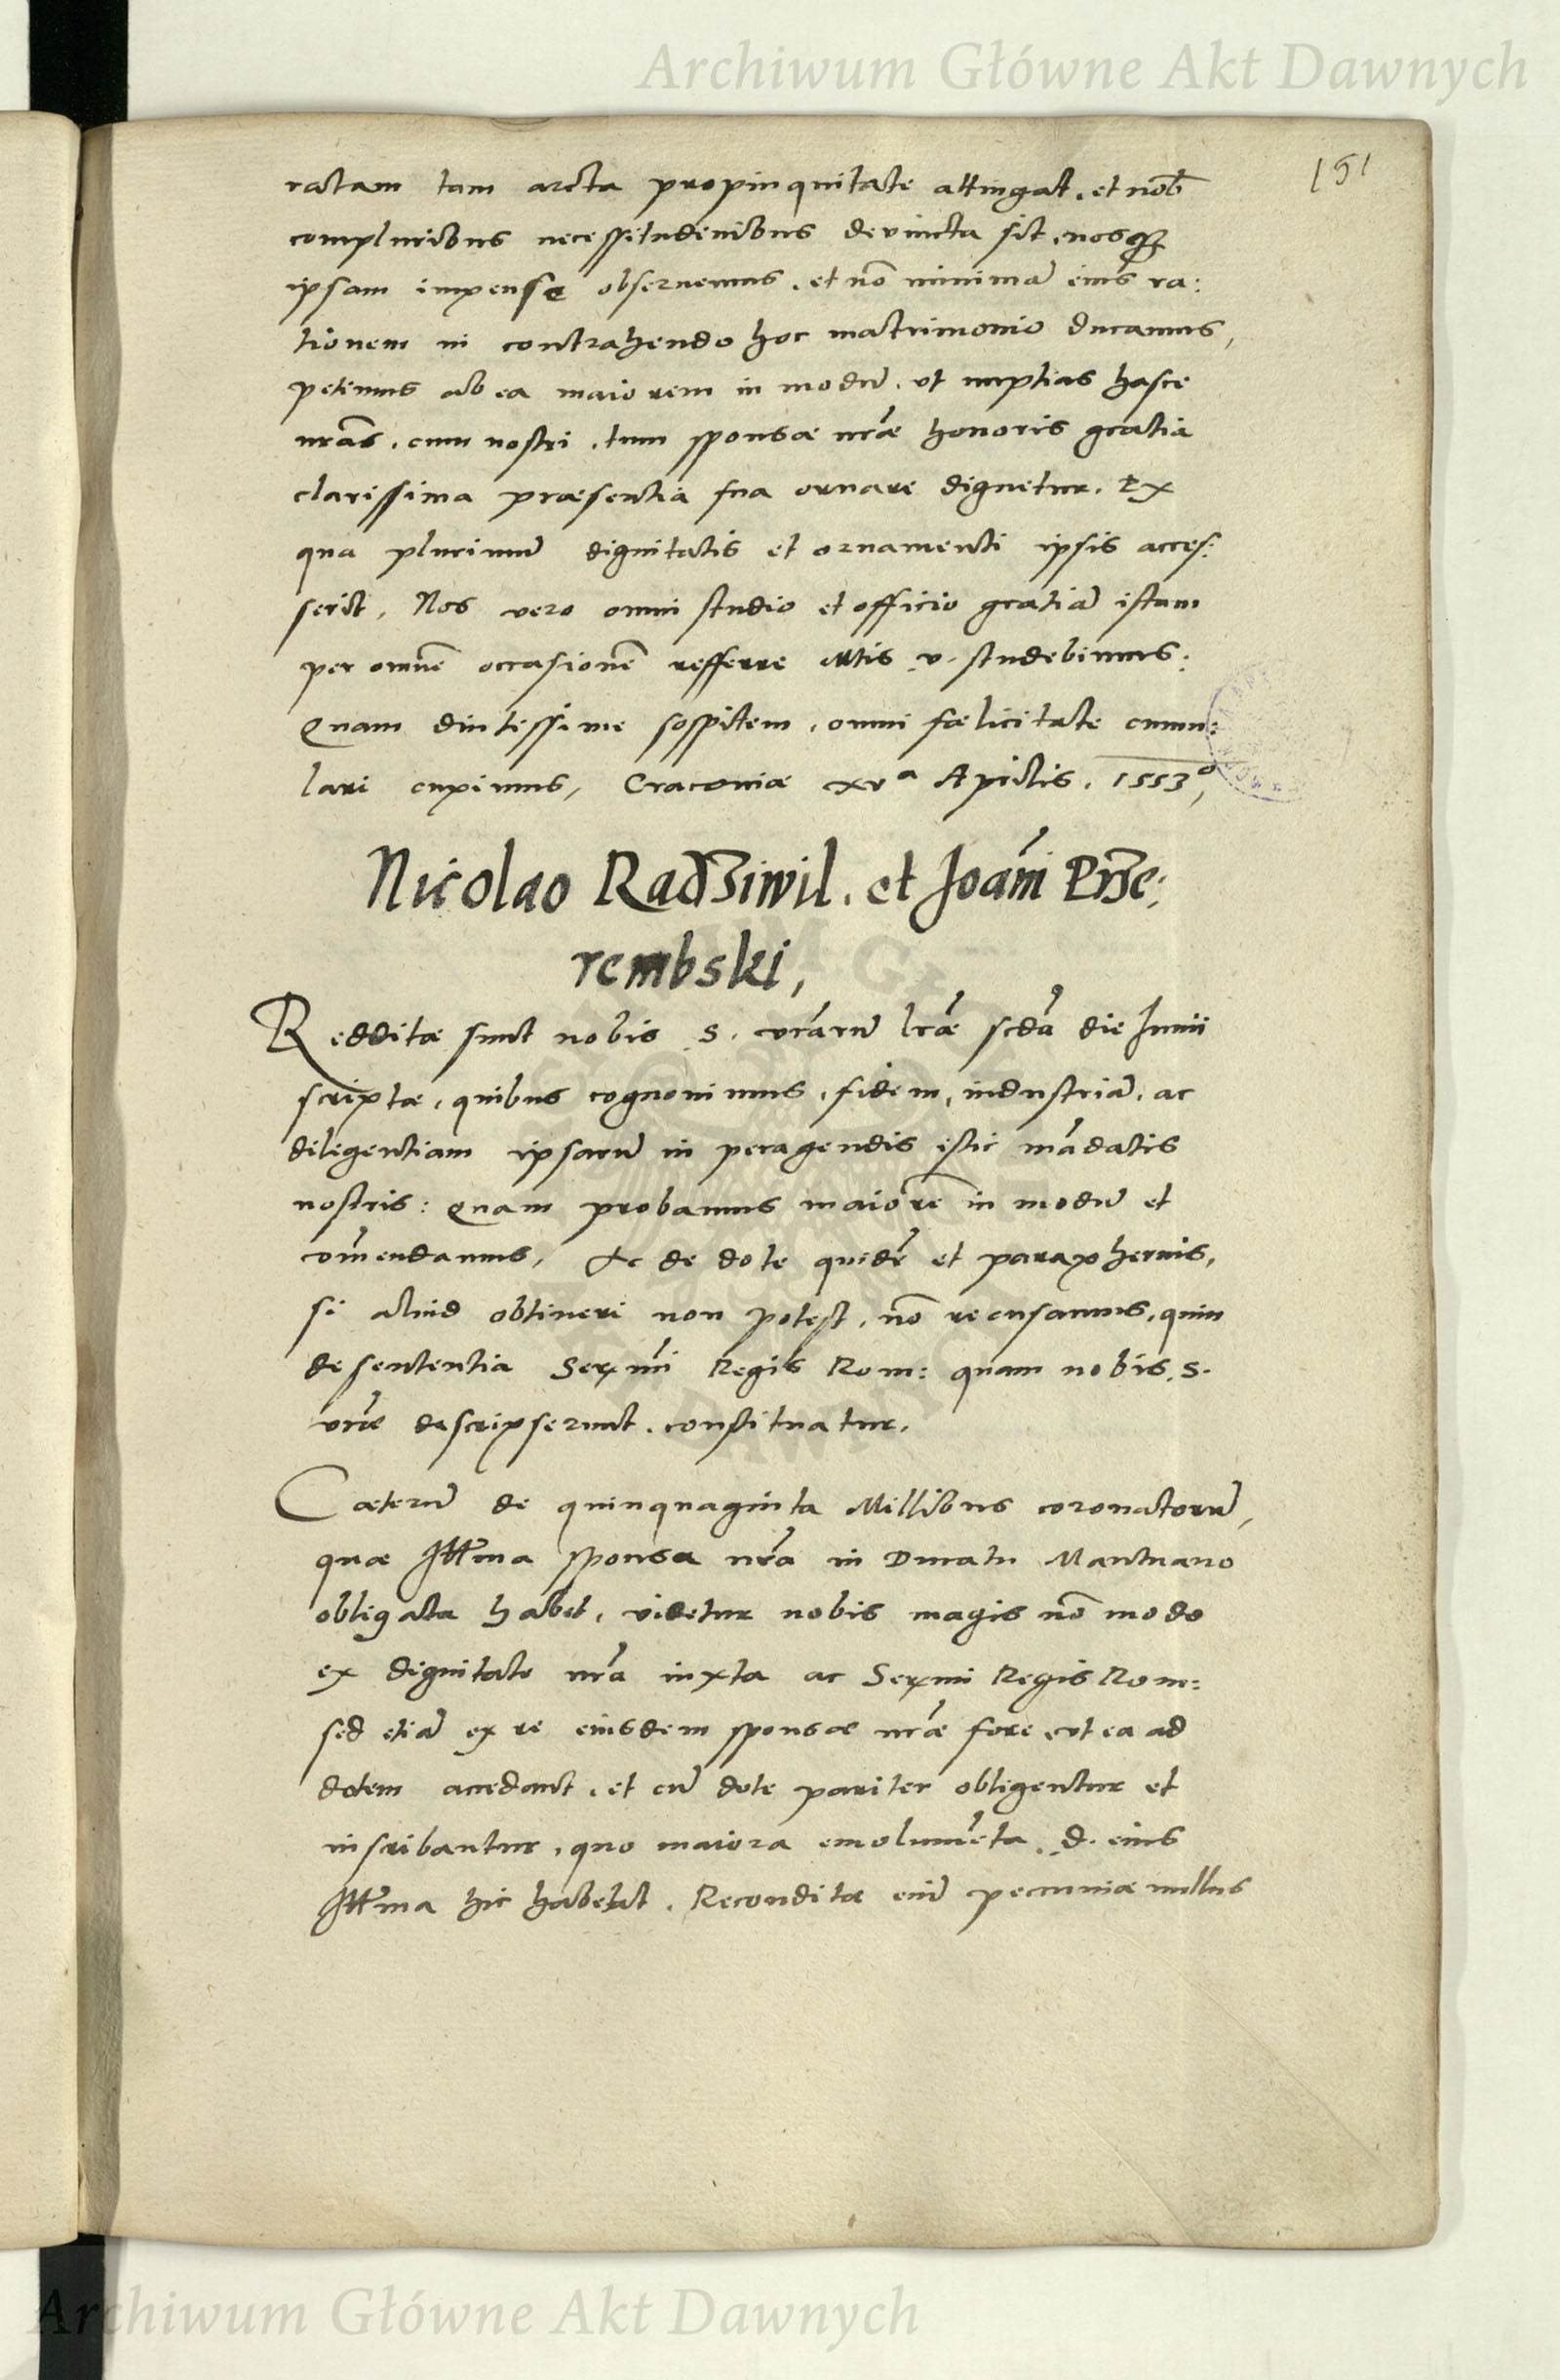 Archiwum Główne Akt Dawnych
151
ratam tam arcta propinquitate attingat, et nob̃
compluribus necessitudinibus devincta sit, nosq̃
ipsam impense observemus, et nõ minimã eius ra:
tionem in contrahendo hoc matrimonio ducamus,
petimus ab ea maiorem in modũ, ut nuptias hasce
nrãs, cum nostri, tum sponsæ nrãe honoris gratia
clarissima præsentia sua ornare dignetur. Ex
qua plurimũ dignitatis et ornamenti ipsis acces:
serit, Nos vero omni studio et officio gratiã istam
per omnẽ occasionẽ refferre Mtis v. studebimus:
Quam diutissime sospitem, omni fœlicitate cumu:
lari cupimus, Cracoviæ xvᵃ Aprilis. 1553º,
Nicolao Radziwil. et Joañi Prze:
rembski,
Redditæ sunt nobis S. vrãrũ lrãe scdã die Junii
scriptæ, quibus cognovimus, fidem, industriã, ac
diligentiam ipsarũ in peragendis istic mãdatis
nostris: Quam probamus maiorẽ in modũ et
com̃endamus, Ac de dote quidẽ et paraphernis,
si aliud obtineri non potest, nõ recusamus, quin
de sententia Serm̃i Regis Rom: quam nobis S.
vrãe descripserunt, constituatur.
Cæterũ de quinquaginta Millibus coronatorũ,
quæ Illma sponsa nrã in Ducatu Mantuano
obligata habet, videtur nobis magis nõ modo
ex dignitate nrã iuxta ac Sermi Regis Rom:
sed etiã ex re eiusdem sponsæ nrãe fore, ut ea ad
dotem accedant, et cũ dote pariter obligentur et
inscribantur, quo maiora emolumẽta D. eius
Illma hic habebit. Reconditæ enĩ pecuniæ nullus
Archiwum Główne Akt Dawnych